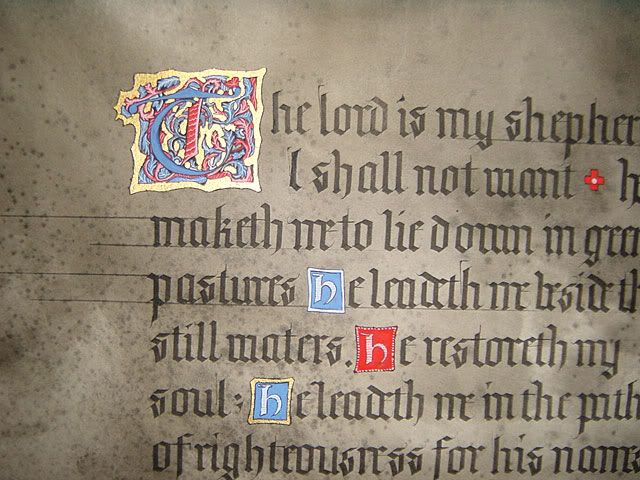 The lord is my shepher
I shall not want h
maketh me to lie down in gree
pastures he leadeth me beside th
still waters. he restoreth my
soul: he leadeth me in the path
of righteousness for his names